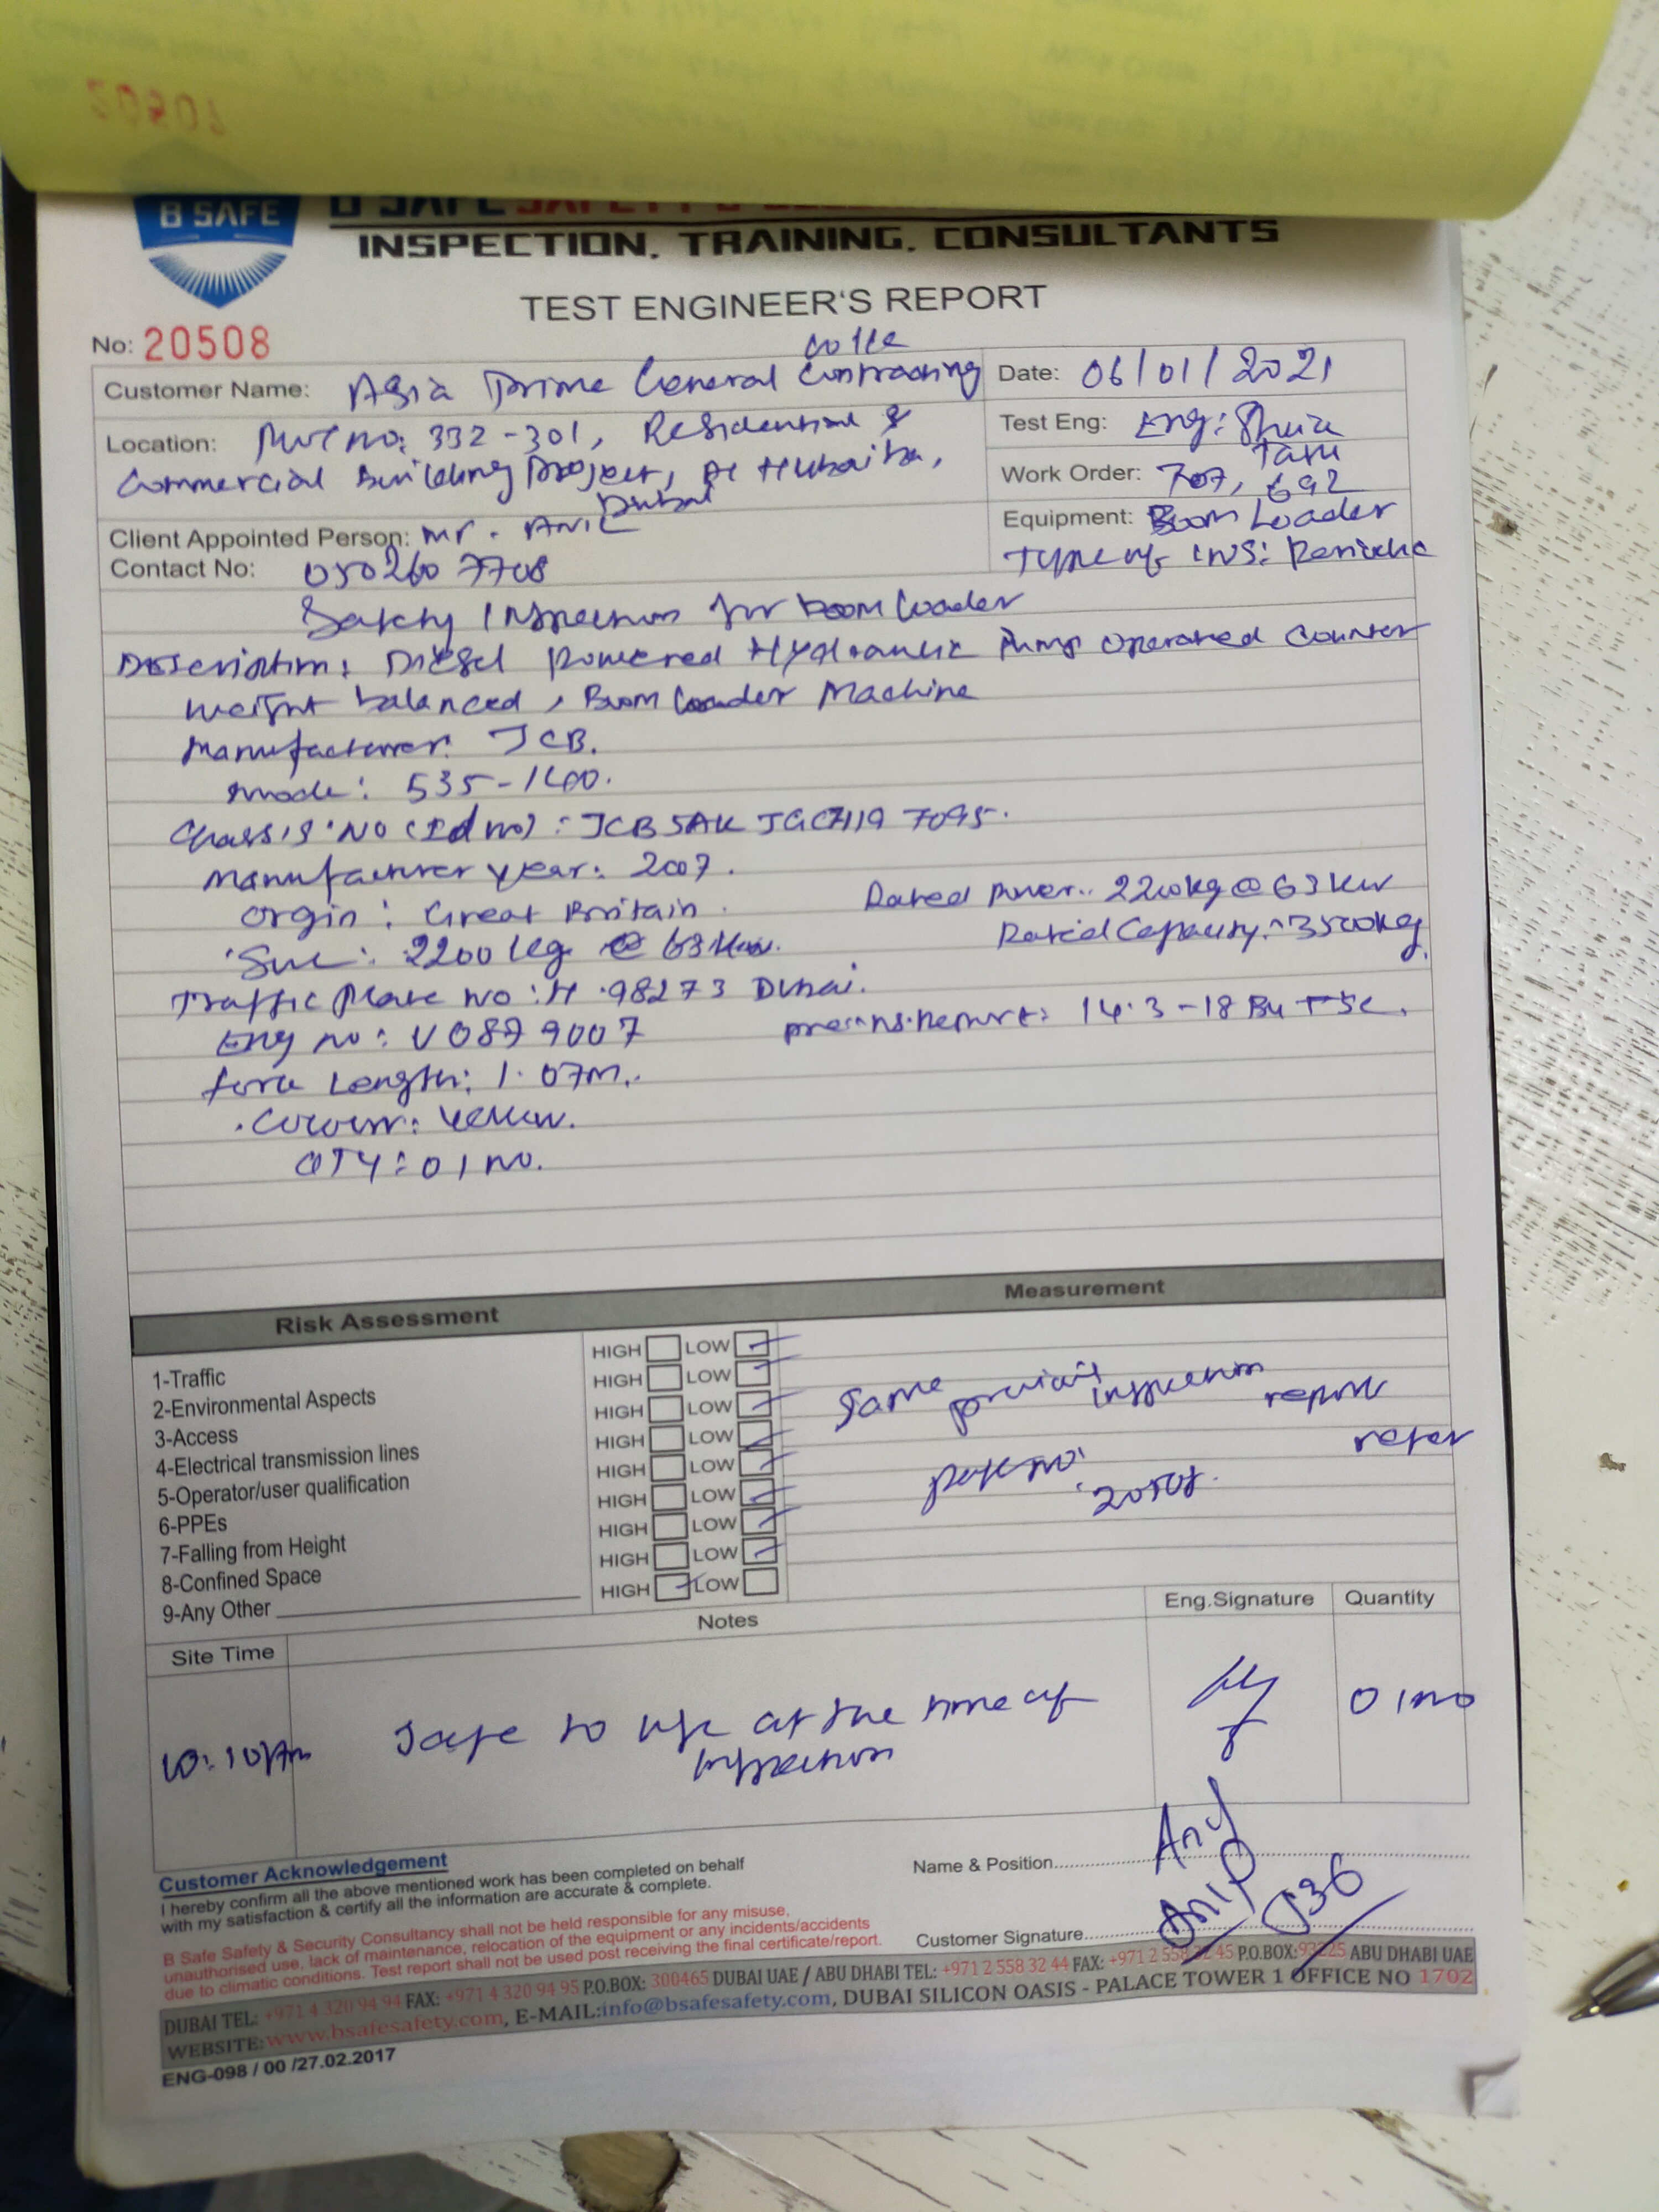 B SAFE
INSPECTION, TRAINING, CONSULTANTS
TEST ENGINEER'S REPORT
No: 20508
Customer Name: Asia Prime General Contracting Co LLC
Date: 06/01/2021
Location: Plot no: 332-301, Residential &
Commercial Building project, Al Hubaiba,
Dubai
Test Eng: Eng:
Work Order: 707, 692
Client Appointed Person: Mr. Anil
Equipment: Boom Loader
Contact No: 050260 7708
Type of INS: Periodic
Safety Inspection for boom loader
Description: Diesel powered Hydraulic Pump operated Counter
weight balanced, Boom loader Machine
Manufacturer: JCB.
Mode: 535-140.
Chassis No (Id no): JCB5AK JGC7119 7095.
Manufacturer year: 2007.
Orgin: Great Britain.
Rated power: 2200kg @ 63 kw
SWL: 2200 kg @ 63 kw.
Rated Capacity: 3500kg.
Traffic Plate No: H 98273 Dubai.
Eng no: V0879007
pre.ins.Report: 14.3-18 By TSC.
fork Length: 1.07m.
Colour: Yellow.
QTY: 01 no.
Risk Assessment
Measurement
1-Traffic HIGH LOW
2-Environmental Aspects HIGH LOW
3-Access HIGH LOW
4-Electrical transmission lines HIGH LOW
5-Operator/user qualification HIGH LOW
6-PPEs HIGH LOW
7-Falling from Height HIGH LOW
8-Confined Space HIGH LOW
9-Any Other HIGH LOW
Same previous inspection report
refer
page no: 20508.
Site Time
Notes
Eng.Signature
Quantity
10:10Am
Safe to use at the time of
inspection
01no
Customer Acknowledgement
I hereby confirm all the above mentioned work has been completed on behalf
with my satisfaction & certify all the information are accurate & complete.
Name & Position
Customer Signature
B Safe Safety & Security Consultancy shall not be held responsible for any misuse,
unauthorised use, lack of maintenance, relocation of the equipment or any incidents/accidents
due to climatic conditions. Test report shall not be used post receiving the final certificate/report.
DUBAI TEL: +971 4 320 94 94 FAX: +971 4 320 94 95 P.O.BOX: 300465 DUBAI UAE / ABU DHABI TEL: +971 2 558 32 44 FAX: +971 2 558 32 45 P.O.BOX: ABU DHABI UAE
WEBSITE: www.bsafesafety.com, E-MAIL:info@bsafesafety.com, DUBAI SILICON OASIS - PALACE TOWER 1 OFFICE NO 1702
ENG-098 / 00 /27.02.2017